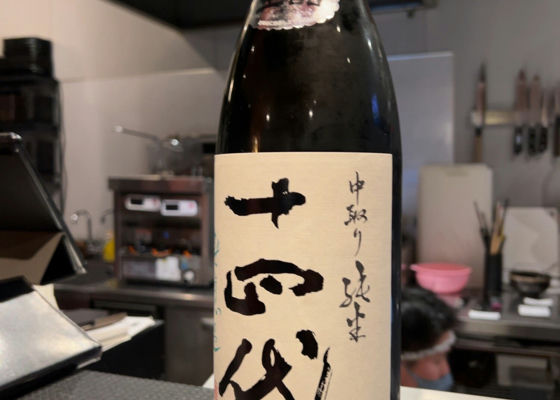 中取り 純米
十四代